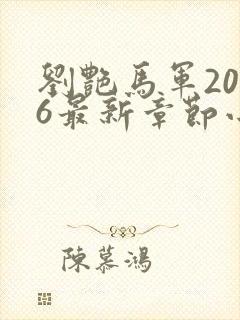 劉艷馬軍20
6最新章節
陳慕鴻